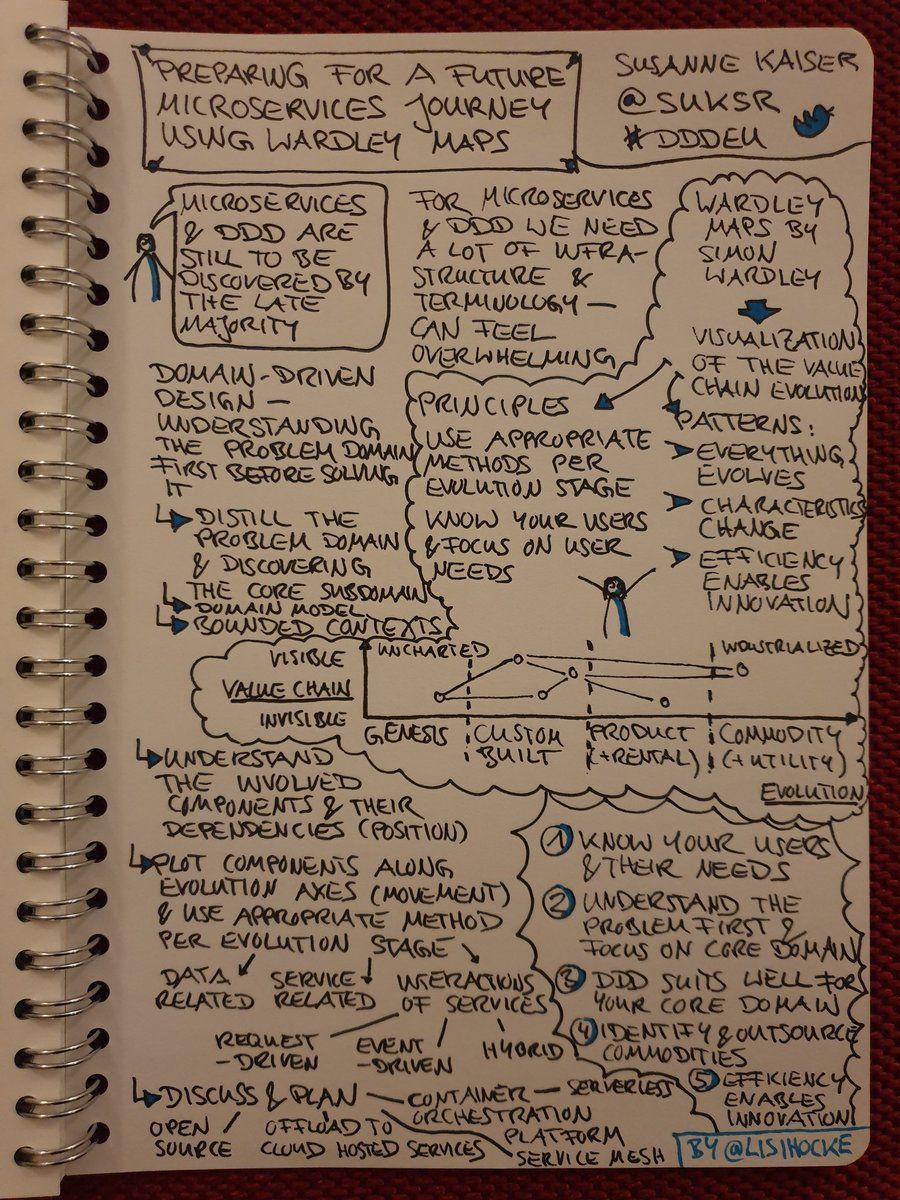 PREPARING FOR A FUTURE
MICROSERVICES JOURNEY
USING WARDLEY MAPS
SUSANNE KAISER
@SUKSR
#DDDEU
MICROSERVICES
& DDD ARE
STILL TO BE
DISCOVERED BY
THE LATE
MAJORITY
FOR MICROSERVICES
& DDD WE NEED
A LOT OF INFRA-
STRUCTURE &
TERMINOLOGY —
CAN FEEL
OVERWHELMING
WARDLEY
MAPS BY
SIMON
WARDLEY
VISUALIZATION
OF THE VALUE
CHAIN EVOLUTION
PATTERNS:
EVERYTHING
EVOLVES
CHARACTERISTICS
CHANGE
EFFICIENCY
ENABLES
INNOVATION
PRINCIPLES
USE APPROPRIATE
METHODS PER
EVOLUTION STAGE
KNOW YOUR USERS
& FOCUS ON USER
NEEDS
DOMAIN-DRIVEN
DESIGN —
UNDERSTANDING
THE PROBLEM DOMAIN
FIRST BEFORE SOLVING
IT
DISTILL THE
PROBLEM DOMAIN
& DISCOVERING
THE CORE SUBDOMAIN
DOMAIN MODEL
BOUNDED CONTEXTS
VISIBLE
VALUE CHAIN
INVISIBLE
UNCHARTED
INDUSTRIALIZED
GENESIS
CUSTOM
BUILT
PRODUCT
(+RENTAL)
COMMODITY
(+UTILITY)
EVOLUTION
UNDERSTAND
THE INVOLVED
COMPONENTS & THEIR
DEPENDENCIES (POSITION)
PLOT COMPONENTS ALONG
EVOLUTION AXES (MOVEMENT)
& USE APPROPRIATE METHOD
PER EVOLUTION STAGE
DATA
RELATED
SERVICE
RELATED
INTERACTIONS
OF SERVICES
REQUEST
-DRIVEN
EVENT
-DRIVEN
HYBRID
DISCUSS & PLAN
CONTAINER
ORCHESTRATION
PLATFORM
SERVERLESS
OPEN
SOURCE
OFFLOAD TO
CLOUD HOSTED SERVICES
SERVICE MESH
1 KNOW YOUR USERS
& THEIR NEEDS
2 UNDERSTAND THE
PROBLEM FIRST &
FOCUS ON CORE DOMAIN
3 DDD SUITS WELL FOR
YOUR CORE DOMAIN
4 IDENTIFY & OUTSOURCE
COMMODITIES
5 EFFICIENCY
ENABLES
INNOVATION
BY @LISIHOCKE